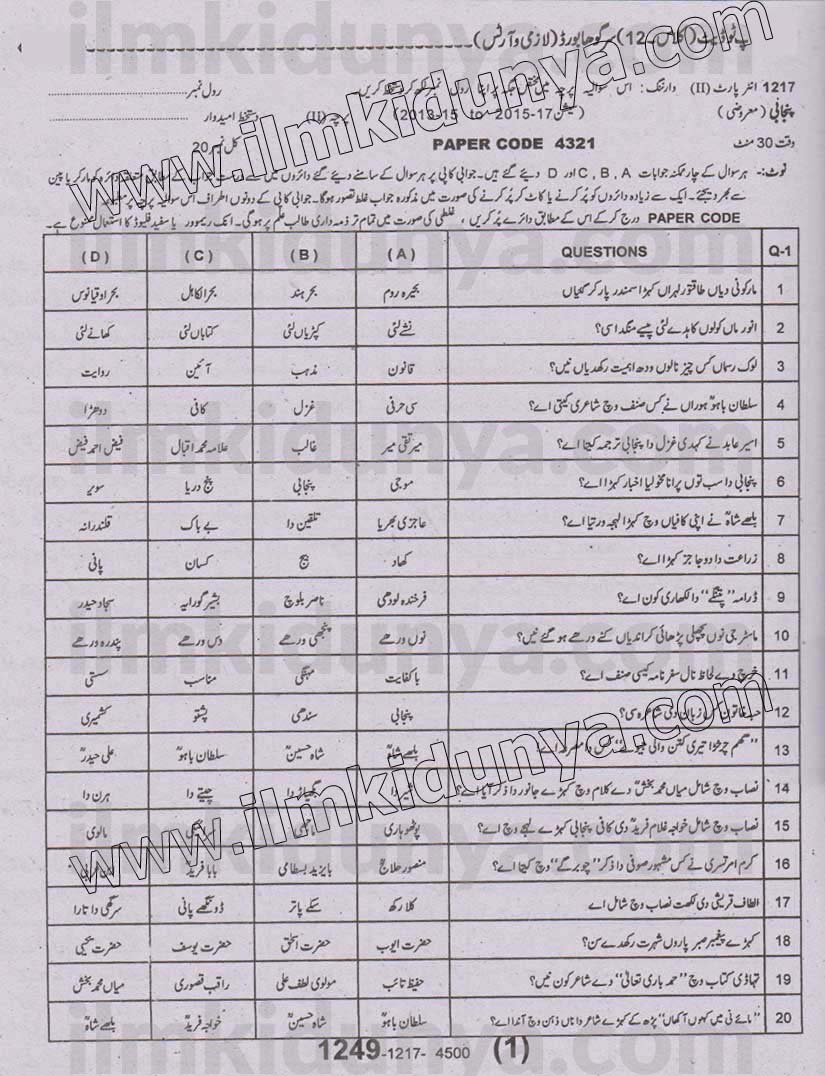 سرگودھا بورڈ (لازمی و آرٹس)
1217 انٹر پارٹ (II) وارننگ: اس سوالیہ پرچہ میں مختص جگہ پر اپنا رول نمبر لکھ کر دستخط کریں۔ رول نمبر
پنجابی (معروضی) (سیشن 2015-17 to 2013-15) پرچہ (II) دستخط امیدوار
وقت 30 منٹ PAPER CODE 4321 کل نمبر 20
نوٹ:- ہر سوال کے چار ممکنہ جوابات A ,B ,C اور D دیئے گئے ہیں۔ جوابی کاپی پر ہر سوال کے سامنے دیئے گئے دائروں میں سے درست جواب کے مطابق متعلقہ دائرہ کو مارکر یا پین
سے بھر دیجئے۔ ایک سے زیادہ دائروں کو پُر کرنے یا کاٹ کر پُر کرنے کی صورت میں مذکورہ جواب غلط تصور ہوگا۔ جوابی کاپی کے دونوں اطراف اس سوالیہ پرچہ پر مطبوعہ
PAPER CODE درج کر کے اس کے مطابق دائرے پُر کریں، غلطی کی صورت میں تمام تر ذمہ داری طالب علم پر ہوگی۔ انک ریموور یا سفید فلیوڈ کا استعمال ممنوع ہے۔
Q-1 QUESTIONS (A) (B) (C) (D)
1 مارکونی دیاں طاقتور لہراں کہڑا سمندر پار کر گئیاں بحیرہ روم بحر ہند بحر الکاہل بحر اوقیانوس
2 انور ماں کولوں کاہدے لئی پیسے منگدا سی؟ نشے لئی کپڑیاں لئی کتاباں لئی کھانے لئی
3 لوک رسماں کس چیز نالوں ودھ اہمیت رکھدیاں نیں؟ قانون مذہب آئین روایت
4 سلطان باہوؒ ہوراں نے کس صنف وچ شاعری کیتی اے؟ سی حرفی غزل کافی دوھڑا
5 اسیر عابد نے کہدی غزل دا پنجابی ترجمہ کیتا اے؟ میر تقی میر غالب علامہ محمد اقبال فیض احمد فیض
6 پنجابی دا سب توں پرانا مخولیا اخبار کہڑا اے؟ موجی پنجابی پنج دریا سویر
7 بلھے شاہؒ نے اپنی کافیاں وچ کہڑا لہجہ ورتیا اے؟ عاجزی بھریا تلقین دا بے باک قلندرانہ
8 زراعت دا دوجا جز کہڑا اے؟ کھاد بیج کسان پانی
9 ڈرامہ "پتنگے" دا لکھاری کون اے؟ فرخندہ لودھی ناصر بلوچ بشیر گورایہ سجاد حیدر
10 ماسٹر جی نوں پڑھائی کراندیاں کنے ورھے ہو گئے نیں؟ نوں ورھے پنجھی ورھے دس ورھے پندرہ ورھے
11 خرچ دے لحاظ نال سفر نامہ کیسی صنف اے؟ باکفایت مہنگی مناسب سستی
12 حبہ خاتون کس زبان دی شاعرہ سی؟ پنجابی سندھی پشتو کشمیری
13 "گھم چرخڑا تیری کتن والی جیوے" کس دا مصرعہ اے؟ بلھے شاہؒ شاہ حسینؒ سلطان باہوؒ علی حیدرؒ
14 نصاب وچ شامل میاں محمد بخشؒ دے کلام وچ کہڑے جانور دا ذکر آیا اے؟ چیتے دا ہرن دا
15 نصاب وچ شامل خواجہ غلام فریدؒ دی کافی پنجابی کہڑے لہجے وچ اے؟ پوٹھوہاری ماجھی مالوی
16 کرم امرتسری نے کس مشہور صوفی دا ذکر "چوبرگے" وچ کیتا اے؟ منصور حلاجؒ بایزید بسطامی بابا فریدؒ
17 الطاف قریشی دی لکھت نصاب وچ شامل اے کلا رکھ سکے پتر ڈونگھے پانی سرگی دا تارا
18 کہڑے پیغمبر صبر پاروں شہرت رکھدے سن؟ حضرت ایوب حضرت اسحٰق حضرت یوسف حضرت یحییٰ
19 تہاڈی کتاب وچ "حمد باری تعالیٰ" دے شاعر کون نیں؟ حفیظ تائب مولوی لطف علی راقب قصوری میاں محمد بخش
20 "مائے نی میں کہوں آکھاں" پڑھ کے کہڑے شاعر دا ناں ذہن وچ آندا اے؟ سلطان باہوؒ شاہ حسینؒ خواجہ فریدؒ بلھے شاہؒ
1249-1217- 4500 (1)
www.ilmkidunya.com
www.ilmkidunya.com
ilmkidunya.com
ilmkidunya.com
ilmkidunya.com
ilmkidunya.com
ilmkidunya.com